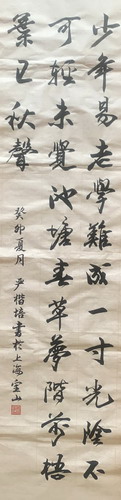 少年易老學難成一寸光陰不
可輕未覺池塘春草夢階前梧
葉已秋聲
癸卯夏月 尹楷培書於上海寶山